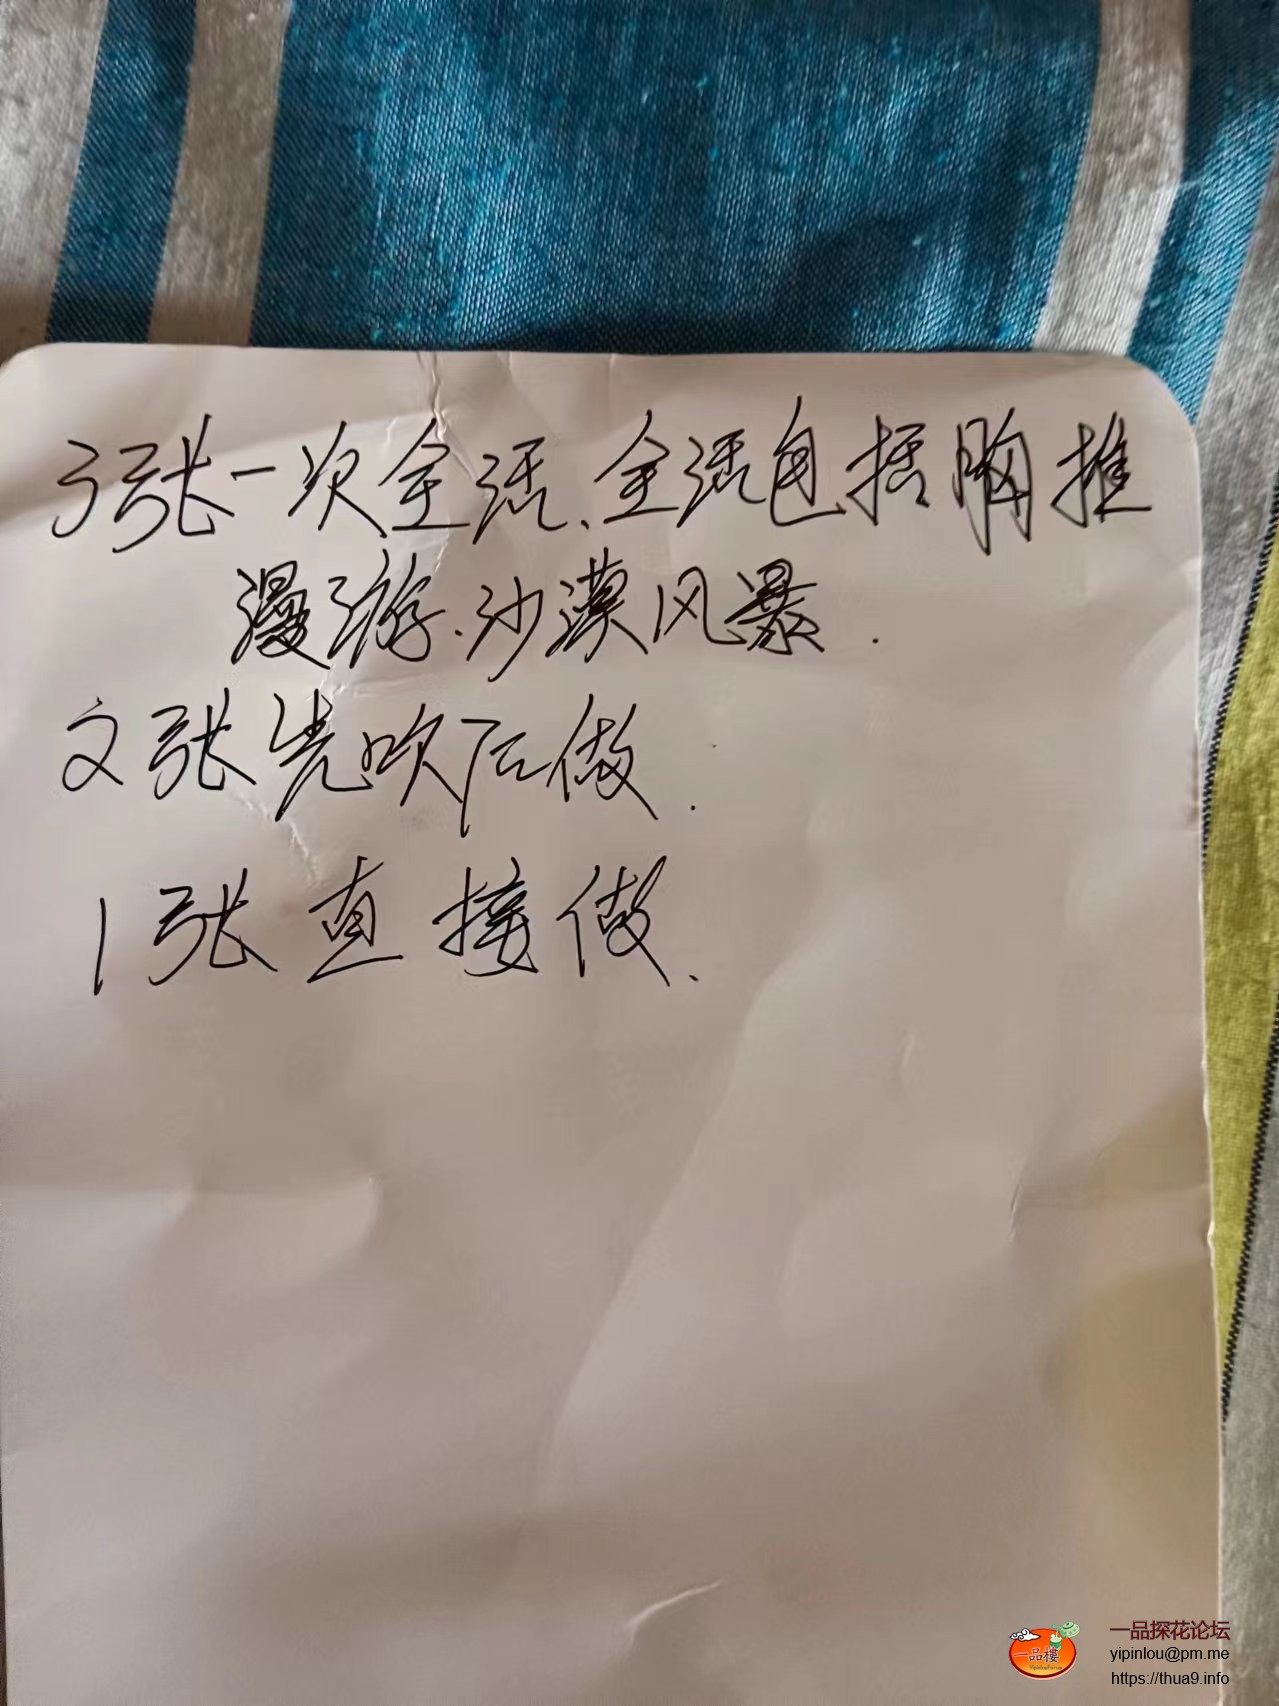 3张一次全活、全活包括胸推
漫游.沙漠风暴.
2张先吹后做.
1张直接做.
一品楼
YipinlouForum
一品探花论坛
yipinlou@pm.me
https://thua9.info